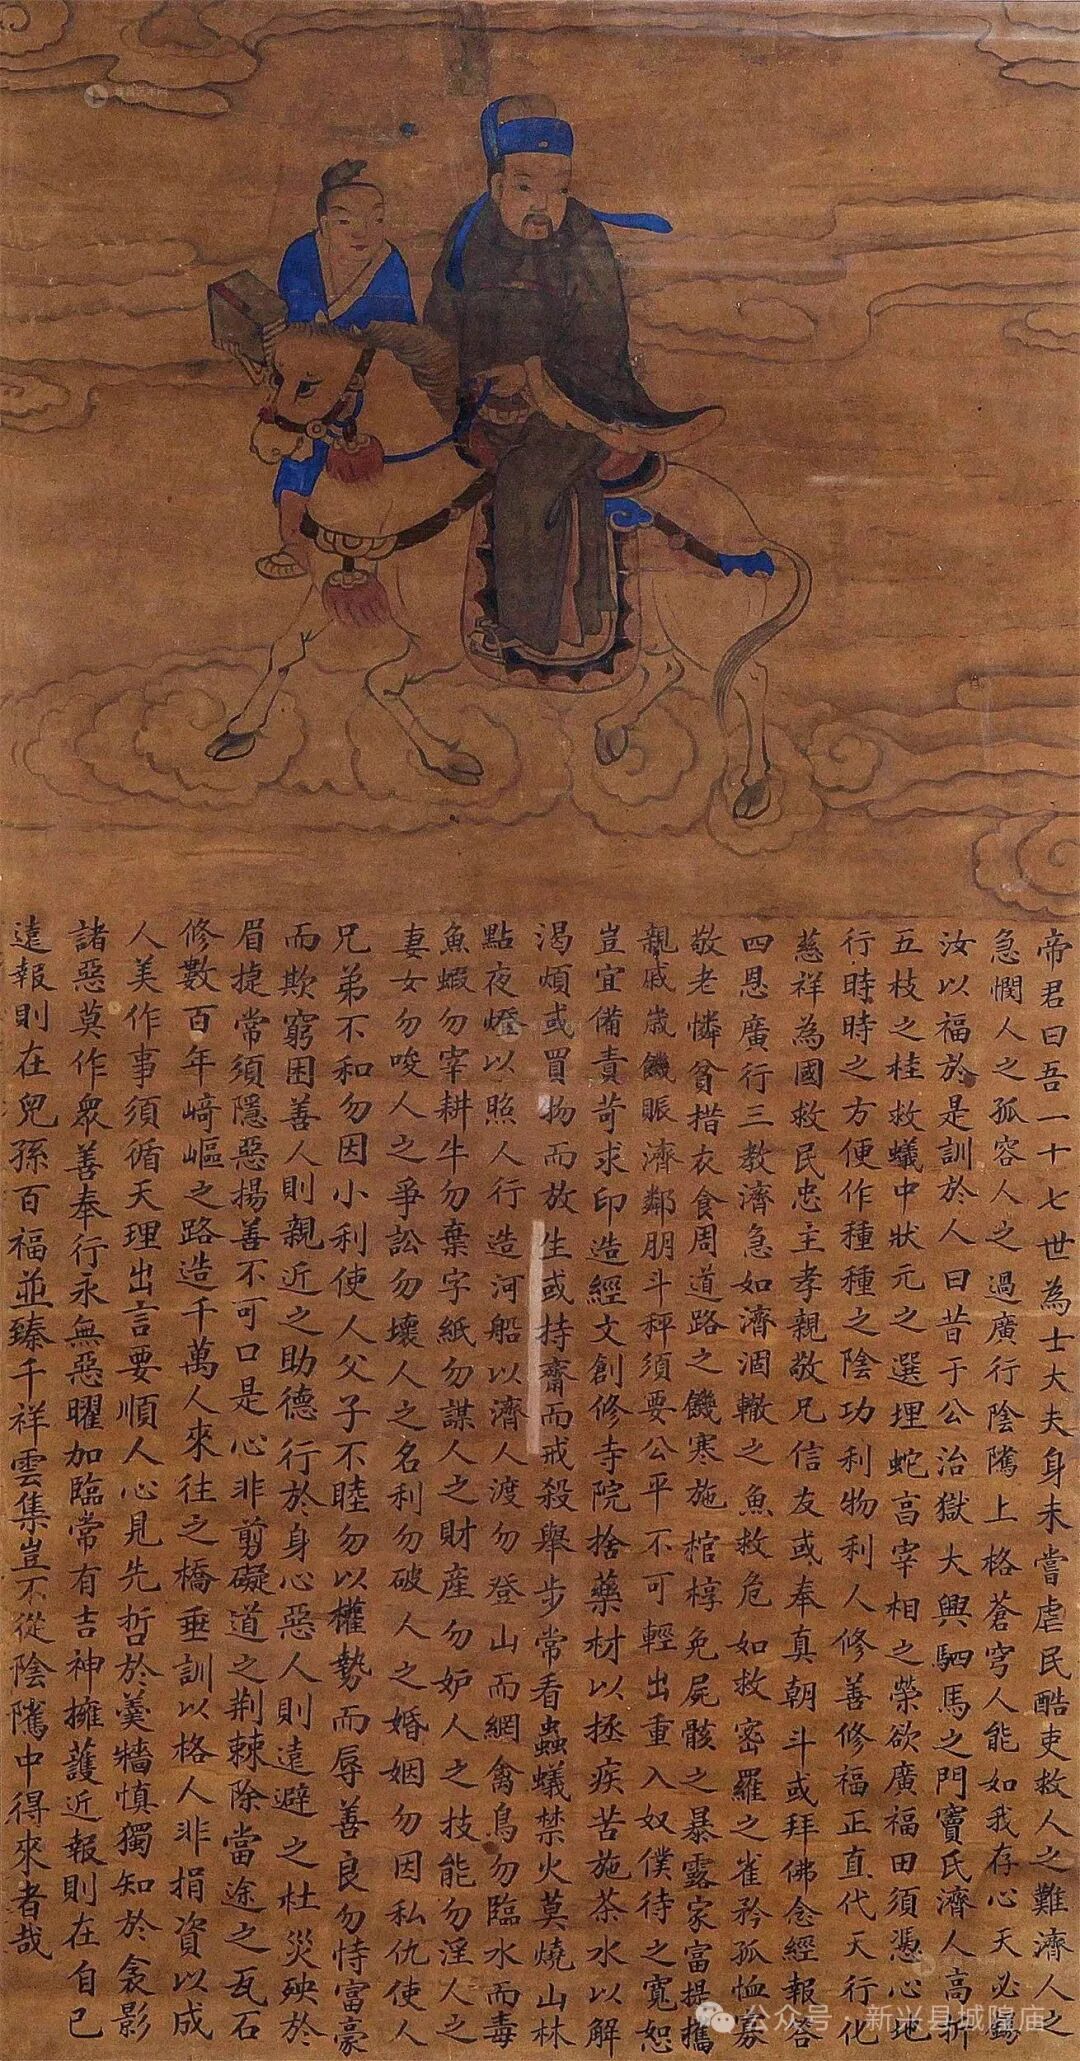 帝君曰吾一十七世為士大夫身未嘗虐民酷吏救人之難濟人之
急憫人之孤容人之過廣行陰騭上格蒼穹人能如我存心天必錫
汝以福於是訓於人曰昔于公治獄大興駟馬之門竇氏濟人高折
五枝之桂救蟻中狀元之選埋蛇享宰相之榮欲廣福田須憑心地
行時時之方便作種種之陰功利物利人修善修福正直代天行化
慈祥為國救民忠主孝親敬兄信友或奉真朝斗或拜佛念經報答
四恩廣行三教濟急如濟涸轍之魚救危如救密羅之雀矜孤恤寡
敬老憐貧措衣食周道路之饑寒施棺椁免屍骸之暴露家富提攜
親戚歲饑賑濟鄰朋斗秤須要公平不可輕出重入奴僕待之寬恕
豈宜備責苛求印造經文創修寺院捨藥材以拯疾苦施茶水以解
渴煩或買物而放生或持齋而戒殺舉步常看蟲蟻禁火莫燒山林
點夜燈以照人行造河船以濟人渡勿登山而網禽鳥勿臨水而毒
魚蝦勿宰耕牛勿棄字紙勿謀人之財產勿妒人之技能勿淫人之
妻女勿唆人之爭訟勿壞人之名利勿破人之婚姻勿因私仇使人
兄弟不和勿因小利使人父子不睦勿以權勢而辱善良勿恃富豪
而欺窮困善人則親近之助德行於身心惡人則遠避之杜災殃於
眉捷常須隱惡揚善不可口是心非剪礙道之荆棘除當途之瓦石
修數百年崎嶇之路造千萬人來往之橋垂訓以格人非捐資以成
人美作事須循天理出言要順人心見先哲於羹牆慎獨知於衾影
諸惡莫作眾善奉行永無惡曜加臨常有吉神擁護近報則在自己
遠報則在兒孫百福並臻千祥雲集豈不從陰騭中得來者哉
公众号·新兴县城隍庙